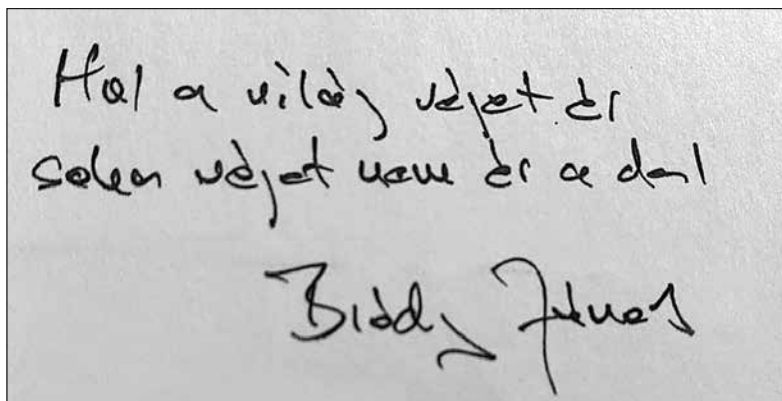 Hol a világ véget ér
soha véget nem ér a dal
Bródy János